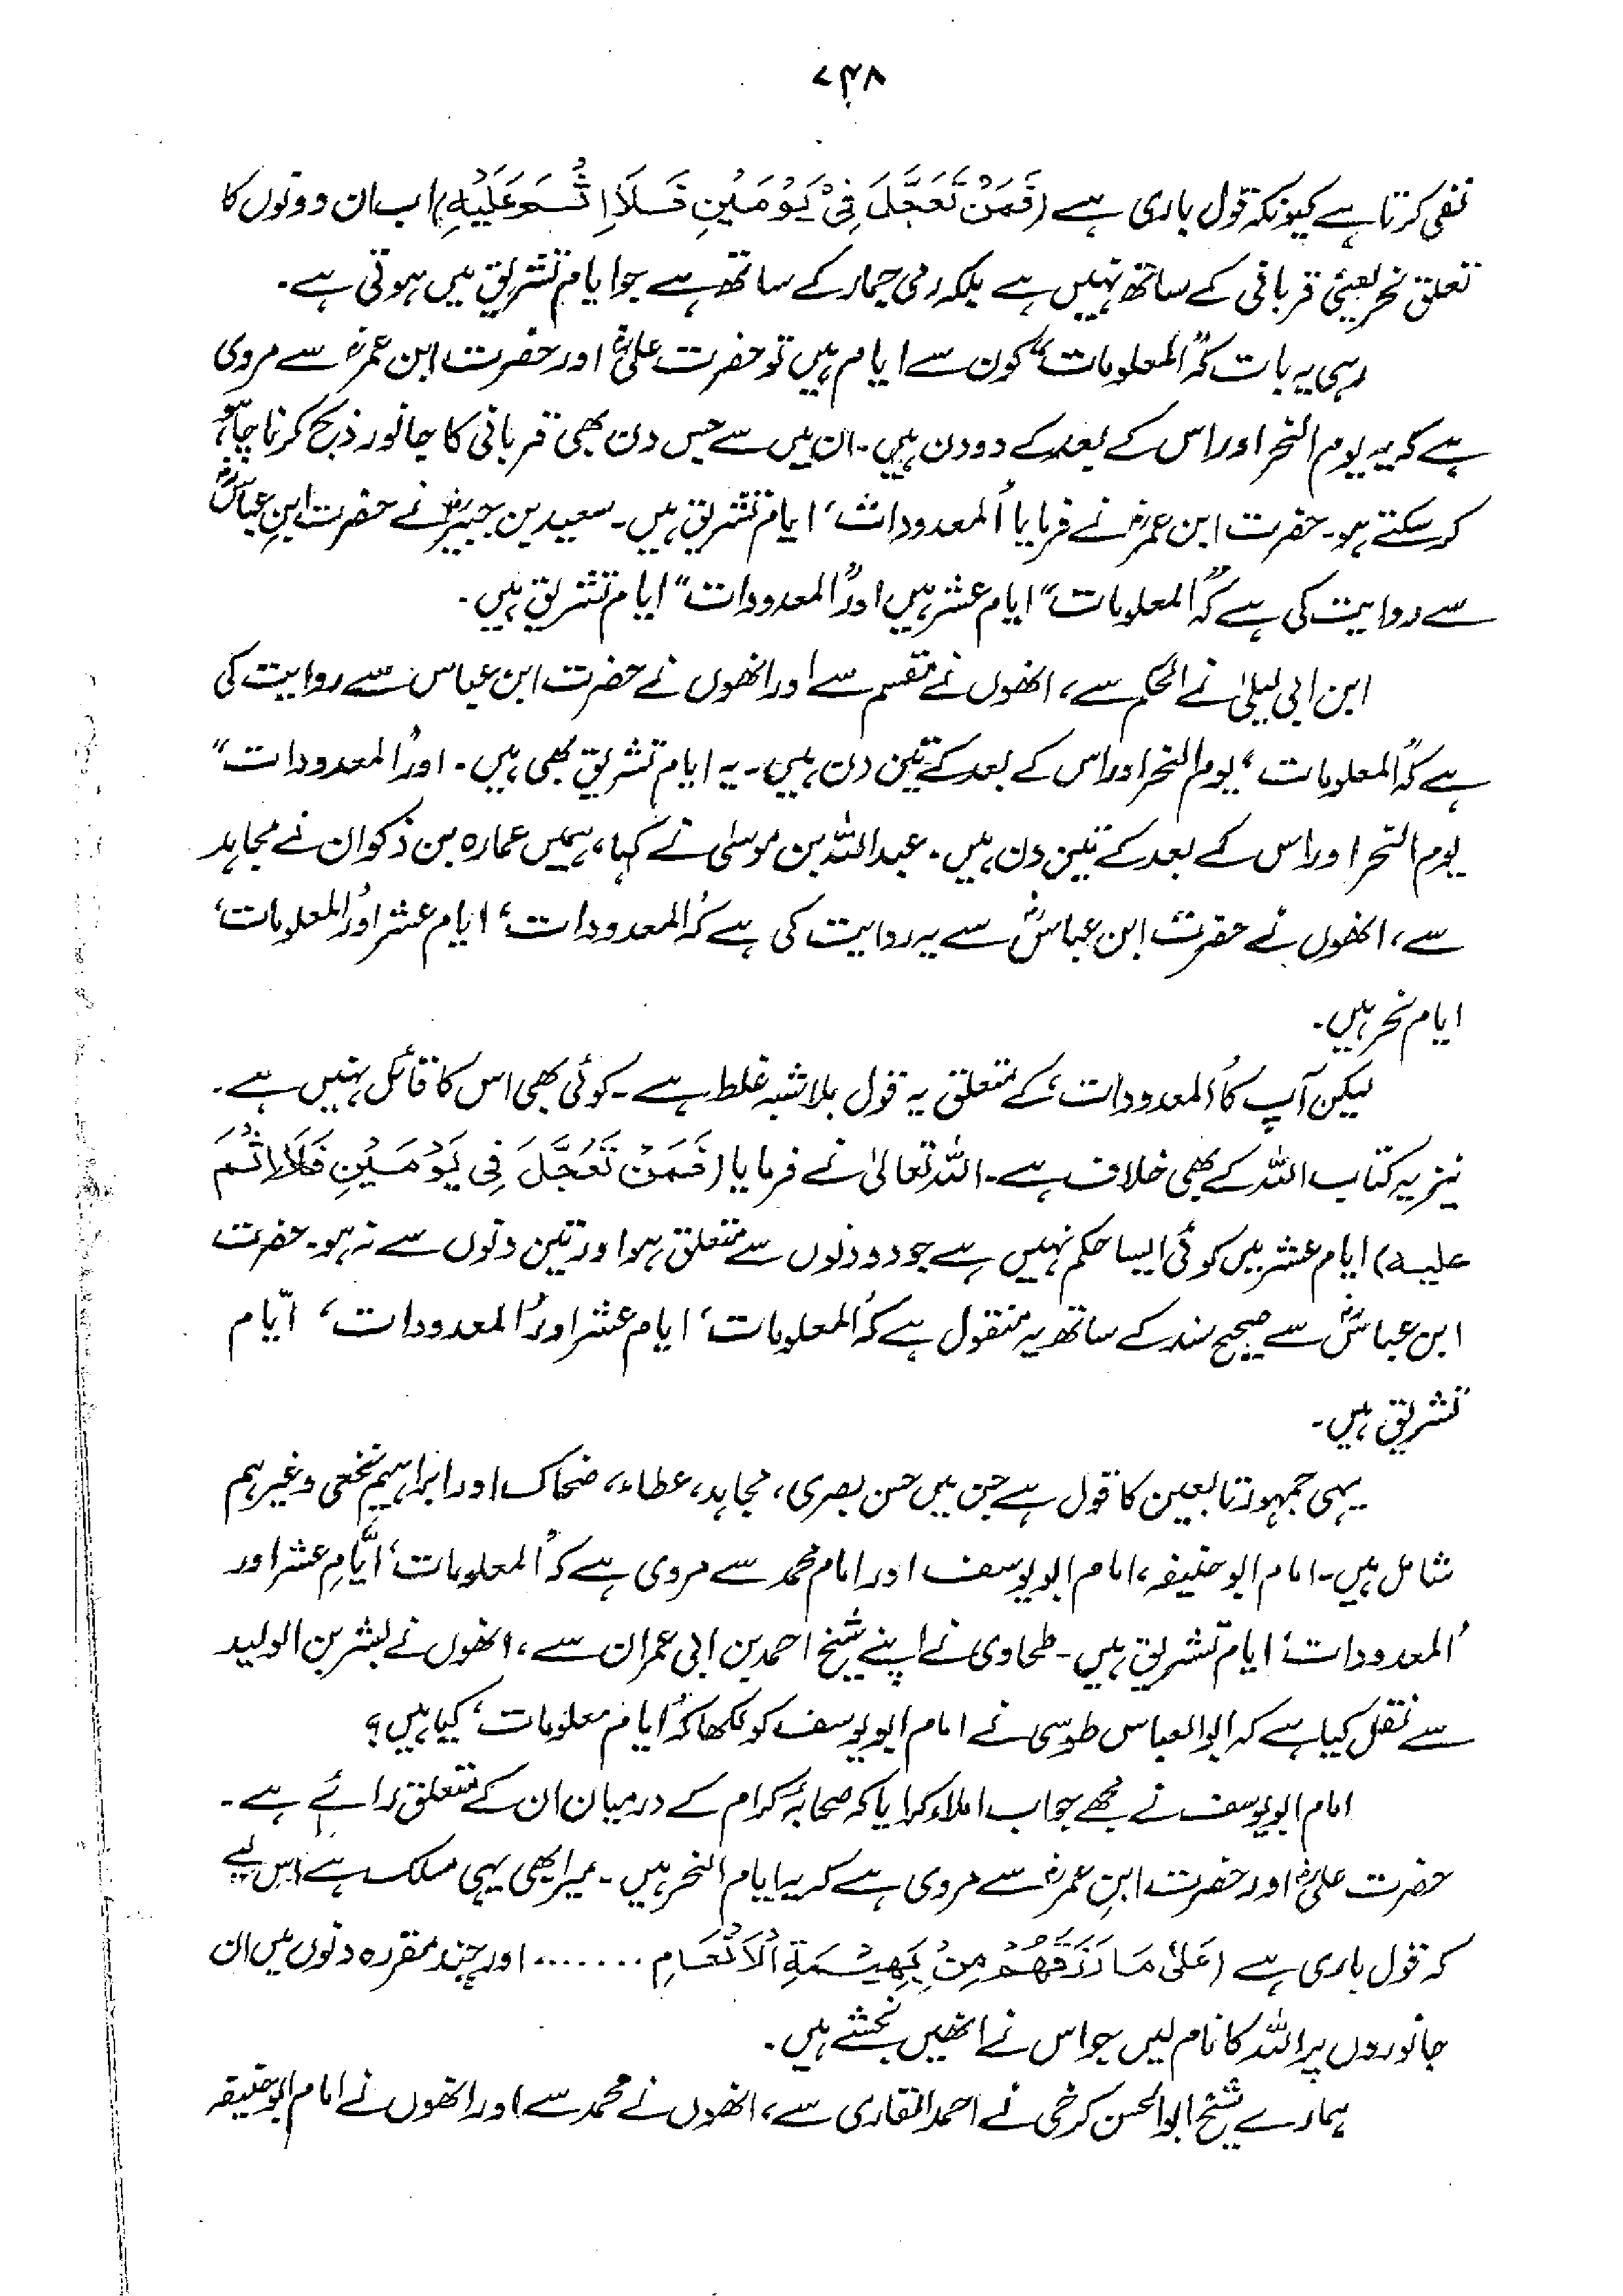 ۷۳۸
نفی کرتا ہے کیونکہ قول باری ہے (فَمَنْ تَعَجَّلَ فِیْ یَوْمَیْنِ فَلَا اِثْمَ عَلَیْهِ) اب ان دونوں کا
تعلق نحر یعنی قربانی کے ساتھ نہیں ہے بلکہ رمی جمار کے ساتھ ہے جو ایام تشریق میں ہوتی ہے۔
رہی یہ بات کہ "المعلومات" کون سے ایام ہیں تو حضرت علیؓ اور حضرت ابن عمرؓ سے مروی
ہے کہ یہ یوم النحر اور اس کے بعد کے دو دن ہیں۔ ان میں سے جس دن بھی قربانی کا جانور ذبح کرنا چاہو
کر سکتے ہو۔ حضرت ابن عمرؓ نے فرمایا 'المعدودات' ایام تشریق ہیں۔ سعید بن جبیرؓ نے حضرت ابنِ عباسؓ
سے روایت کی ہے کہ "المعلومات" ایام عشر ہیں اور "المعدودات" ایام تشریق ہیں۔
ابن ابی لیلیٰ نے الحکم سے، انھوں نے مقسم سے اور انھوں نے حضرت ابن عباس سے روایت کی
ہے کہ "المعلومات" یوم النحر اور اس کے بعد کے تین دن ہیں۔ یہ ایام تشریق بھی ہیں۔ اور "المعدودات"
یوم النحر اور اس کے بعد کے تین دن ہیں۔ عبداللہ بن موسیٰ نے کہا، ہمیں عمارہ بن ذکوان نے مجاہد
سے، انھوں نے حضرت ابن عباسؓ سے یہ روایت کی ہے کہ 'المعدودات' ایام عشر اور 'المعلومات'
ایام نحر ہیں۔
لیکن آپ کا 'المعدودات' کے متعلق یہ قول بلاشبہ غلط ہے۔ کوئی بھی اس کا قائل نہیں ہے۔
نیز یہ کتاب اللہ کے بھی خلاف ہے۔ اللہ تعالیٰ نے فرمایا (فَمَنْ تَعَجَّلَ فِی یَوْمَیْنِ فَلَا اِثْمَ
علیہ) ایام عشر میں کوئی ایسا حکم نہیں ہے جو دو دنوں سے متعلق ہو اور تین دنوں سے نہ ہو۔ حضرت
ابن عباسؓ سے صحیح سند کے ساتھ یہ منقول ہے کہ 'المعلومات' ایام عشر اور 'المعدودات' ایّام
تشریق ہیں۔
یہی جمہور تابعین کا قول ہے جن میں حسن بصری، مجاہد، عطاء، ضحاک اور ابراہیم نخعی وغیرہم
شامل ہیں۔ امام ابو حنیفہ، امام ابو یوسف اور امام محمد سے مروی ہے کہ 'المعلومات' ایَّامِ عشر اور
'المعدودات' ایام تشریق ہیں۔ طحاوی نے اپنے شیخ احمد بن ابی عمران سے، انھوں نے بشر بن الولید
سے نقل کیا ہے کہ ابو العباس طوسی نے امام ابو یوسف کو لکھا کہ 'ایام معلومات' کیا ہیں؟
امام ابو یوسف نے مجھے جواب املاء کرایا کہ صحابۂ کرام کے درمیان ان کے متعلق رائے ہے۔
حضرت علیؓ اور حضرت ابنِ عمرؓ سے مروی ہے کہ یہ ایام النحر ہیں۔ میرا بھی یہی مسلک ہے اس لیے
کہ قول باری ہے (عَلیٰ مَا رَزَقَهُمْ مِنْ بَهِیْمَةِ الْاَنْعَامِ ....... اور چند مقررہ دنوں میں ان
جانوروں پر اللہ کا نام لیں جو اس نے انھیں بخشے ہیں۔
ہمارے شیخ ابو الحسن کرخی نے احمد القاری سے، انھوں نے محمد سے اور انھوں نے امام ابو حنیفہ